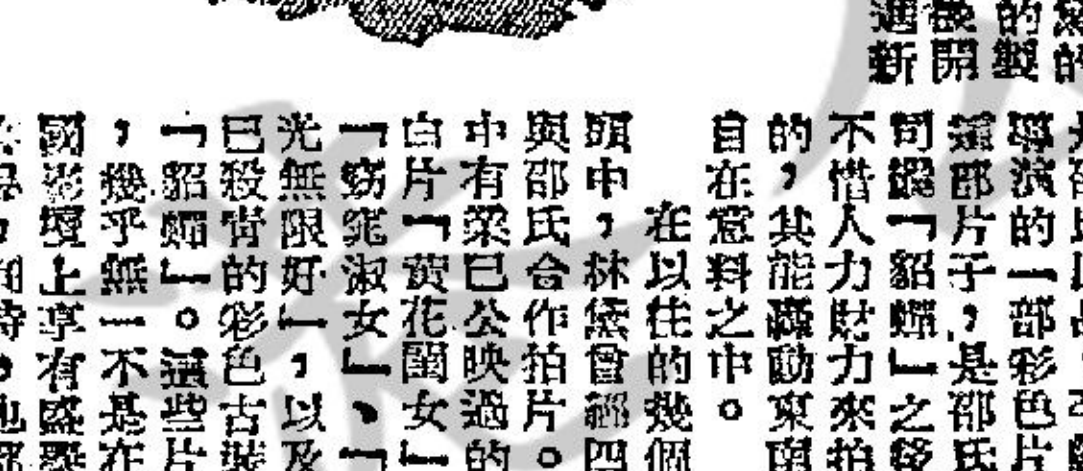 的
的製
後開
遇新
導演的一部彩色片
這部片子,是邵氏
司繼「貂蟬」之後
不惜人力財力來拍
的,其能轟動東南
自在意料之中。
在以往的幾個
頭中,林黛曾經四
與邵氏合作拍片。
中有業已公映過的
白片「黃花閨女」
「窈窕淑女」、「
光無限好」,以及
已殺青的彩色古裝
「貂蟬」。這些片
,幾乎無一不是在
國影壇上享有盛譽